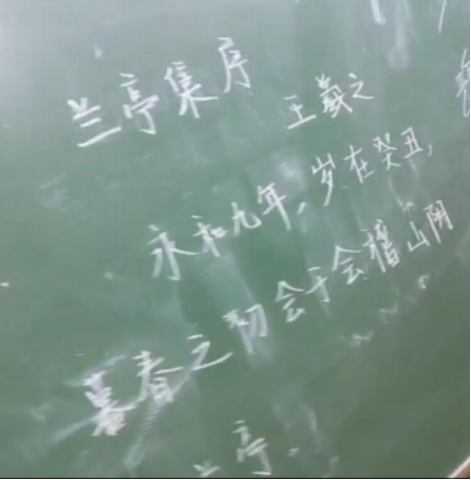 兰亭集序
王羲之
永和九年,岁在癸丑,
暮春之初会于会稽山阴
兰亭.